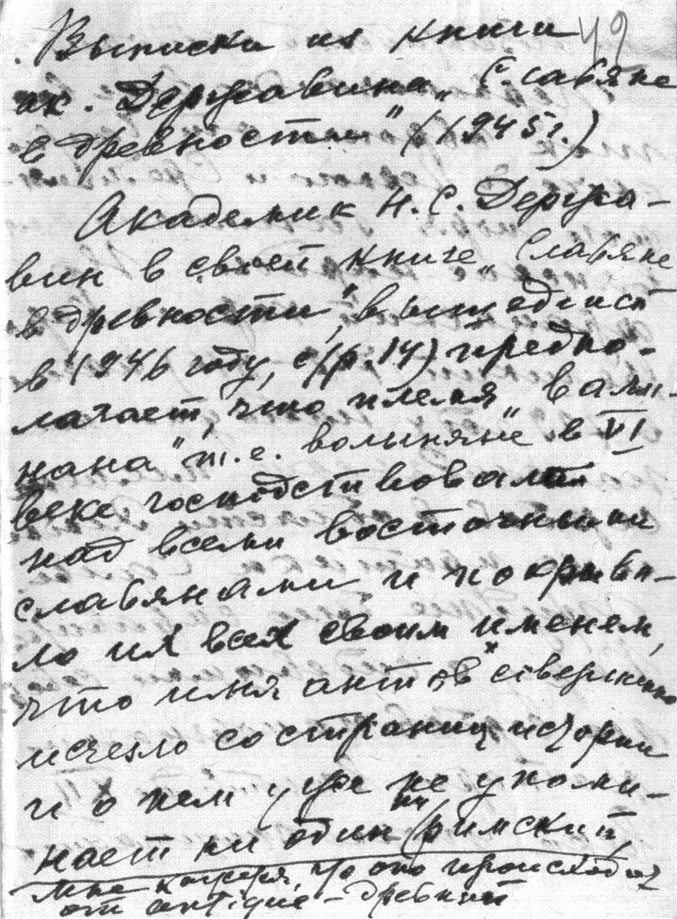 49
Выписки из книги
ак. Державина „Славяне
в древности" (1945 г.)
Академик Н. С. Держа-
вин в своей книге „Славяне
в древности", вышедшей
в 1946 году, (стр. 14) предпо-
лагает, что племя „валы-
нана" т.е. волыняне" в VI
веке господствовало
над всеми восточными
славянами и покрыва-
ло их всех своим именем,
что имя антов* совершенно
исчезло со страниц истории
и о нем уже не упоми-
нает ни один римский,
мне кажется, что оно происходит
от antique - древний